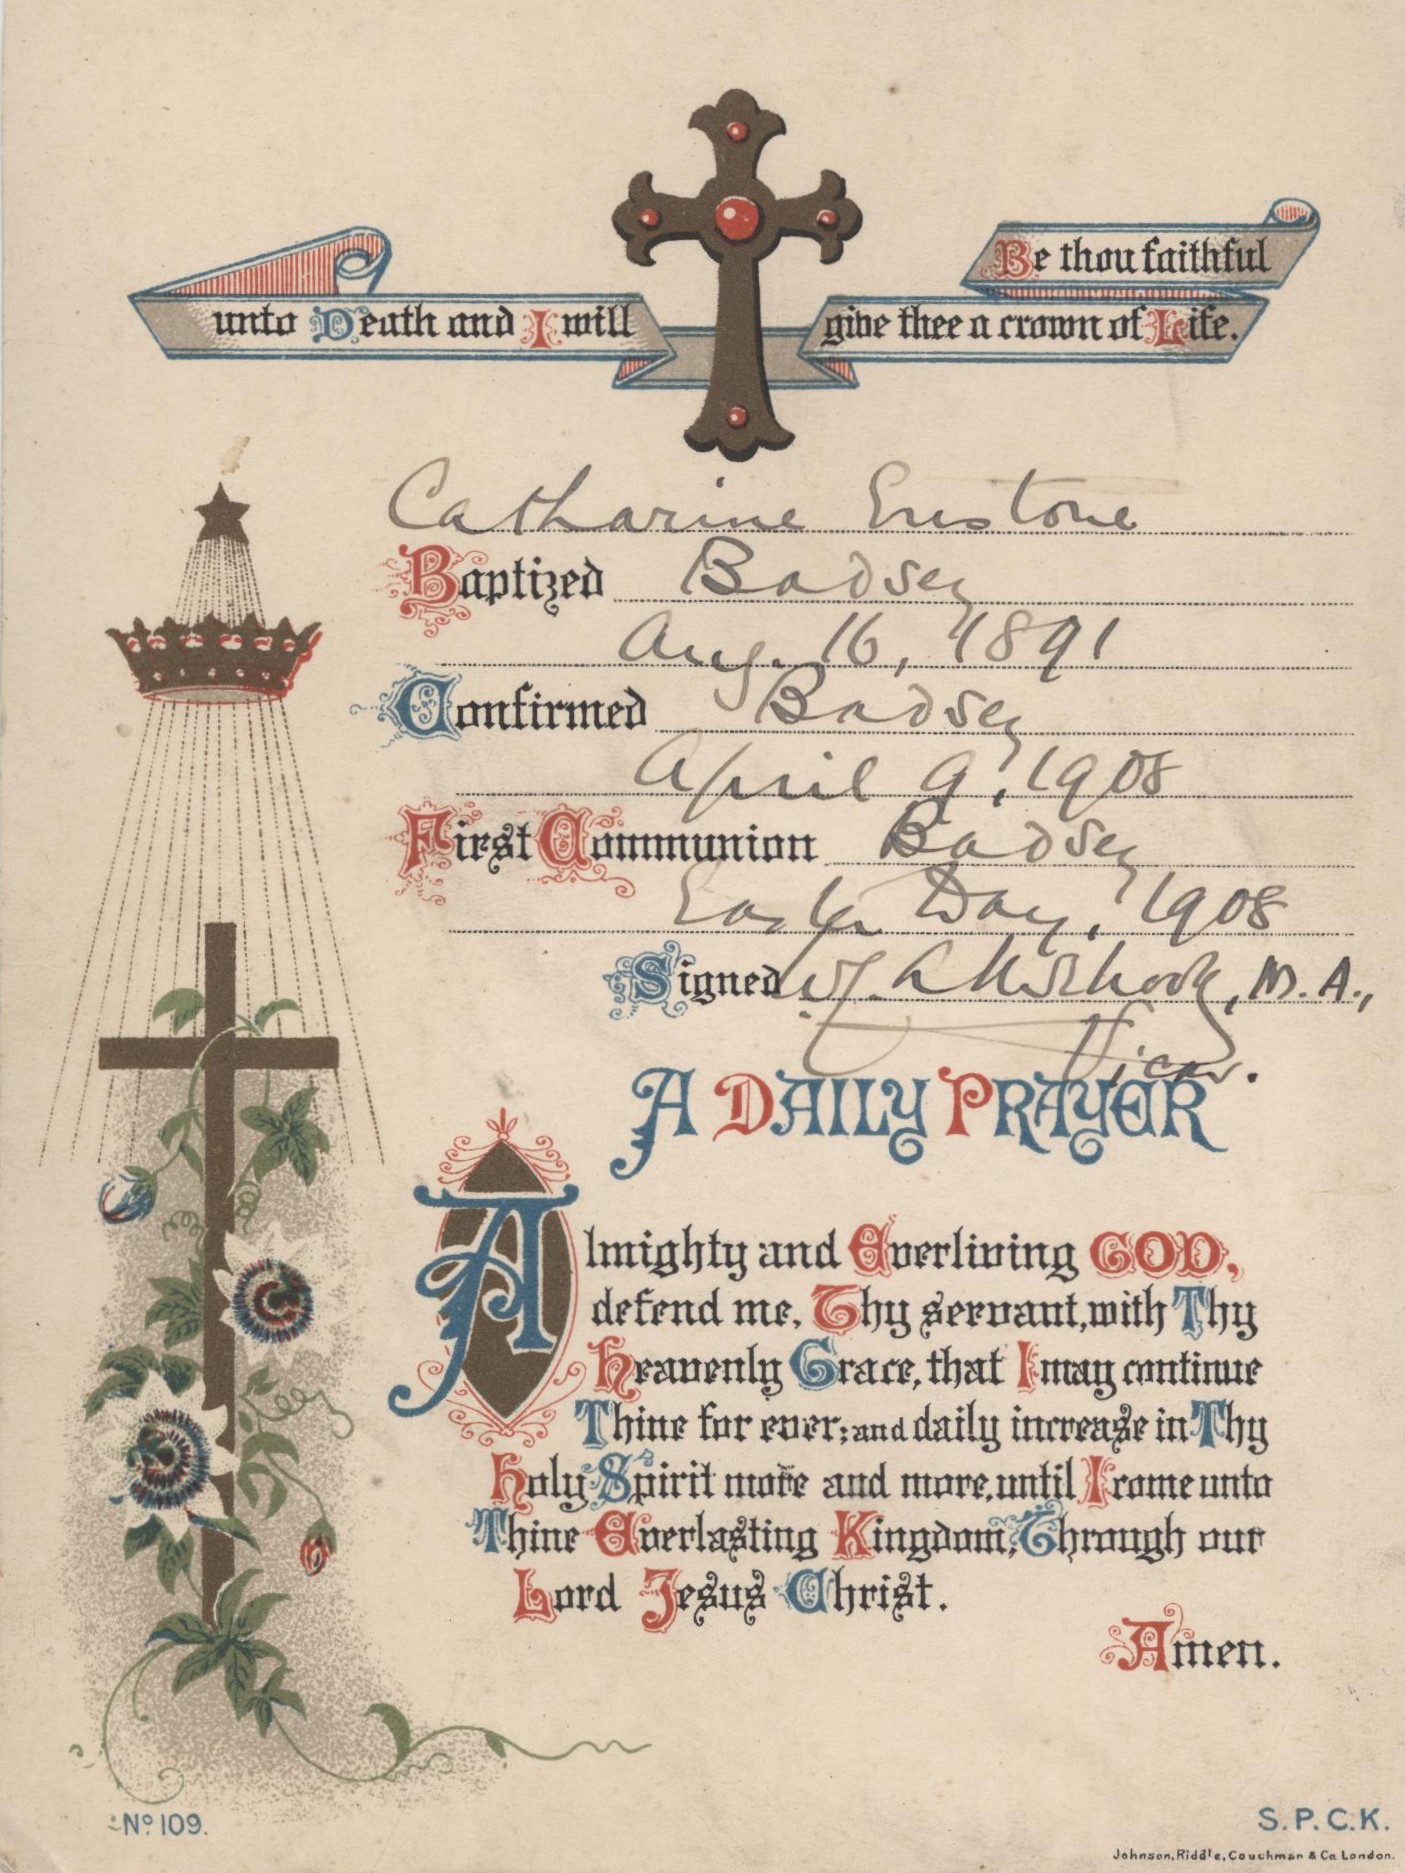 Be thou faithful
unto Death and I will give thee a crown of Life.
Catharine Erustone
Baptized Badsey
Aug. 16, 1891
Confirmed Badsey
April 9, 1908
First Communion Badsey
Easter Day, 1908
Signed W. H. , M. A.,
Vicar.
A DAILY PRAYER
Almighty and Everliving GOD,
defend me, Thy servant, with Thy
Heavenly Grace, that I may continue
Thine for ever; and daily increase in Thy
Holy Spirit more and more, until I come unto
Thine Everlasting Kingdom, Through our
Lord Jesus Christ.
Amen.
No 109.
S. P. C. K.
Johnson, Riddle, Couchman & Co. London.